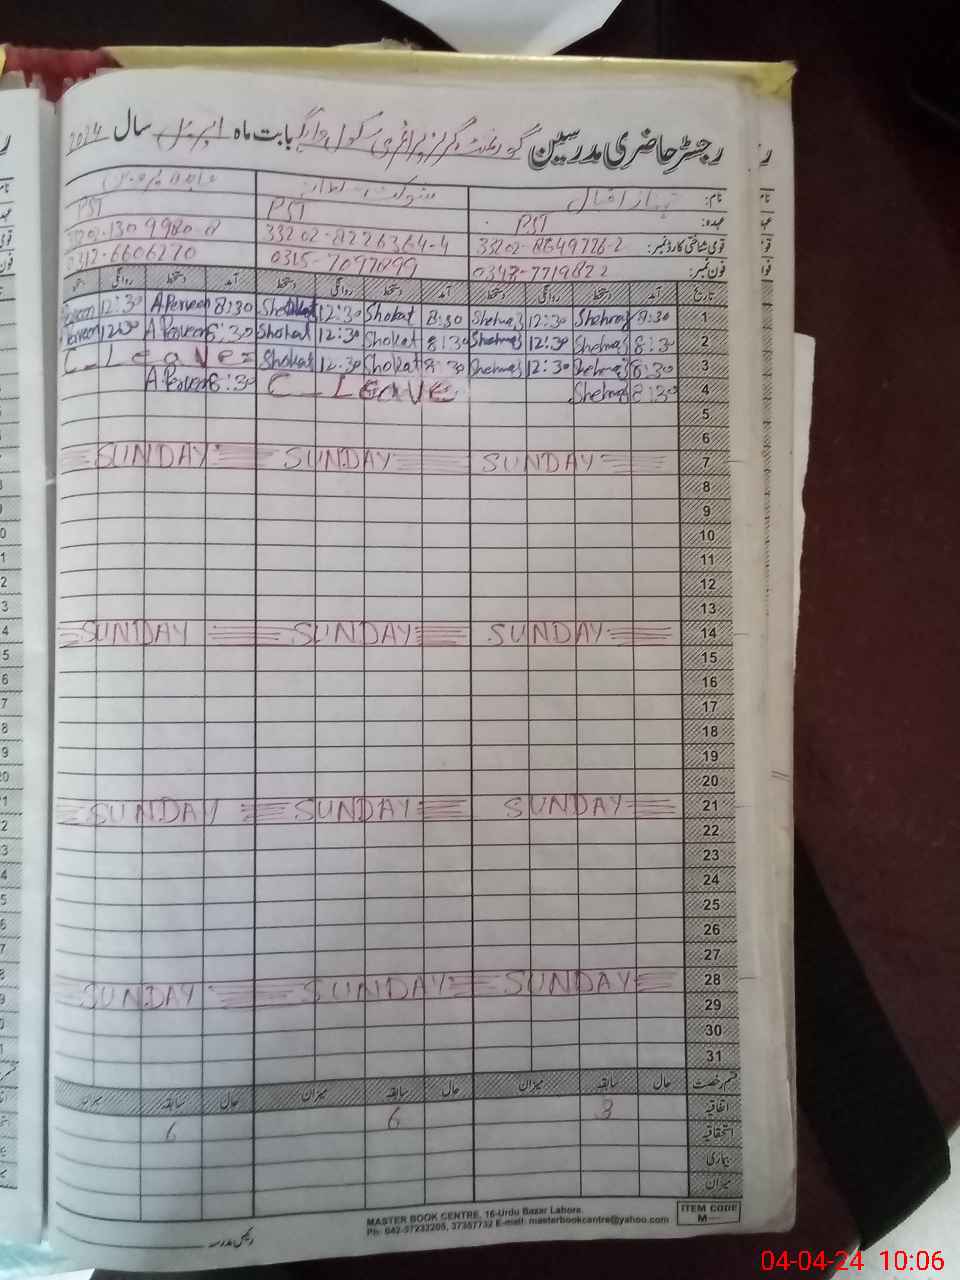 رجسٹر حاضری مدرسین گورنمنٹ گرلز پرائمری سکول بابت ماہ اپریل سال 2024
نام: اقبال شوکت
عہدہ: PST PST PST
قومی شناختی کارڈ نمبر: 33202-8649776-2 33202-8226364-4 33202-130 9980-8
فون نمبر: 0348-7719822 0315-7097899 0312-6606270
تاریخ آمد دستخط روانگی دستخط آمد دستخط روانگی دستخط آمد دستخط روانگی
1 8:30 Shehnaz 12:30 Shehnaz 8:30 Shokat 12:30 Shokat 8:30 A Perveen 12:30 Perveen
2 8:30 Shehnaz 12:30 Shehnaz 8:30 Shokat 12:30 Shokat 8:30 A Perveen 12:30 Perveen
3 8:30 Shehnaz 12:30 Shehnaz 8:30 Shokat 12:30 Shokat C_Leave
4 8:30 Shehnaz C_LEAVE 8:30 A Perveen
5
6
7 SUNDAY SUNDAY SUNDAY
8
9
10
11
12
13
14 SUNDAY SUNDAY SUNDAY
15
16
17
18
19
20
21 SUNDAY SUNDAY SUNDAY
22
23
24
25
26
27
28 SUNDAY SUNDAY SUNDAY
29
30
31
قسم رخصت حال سابقہ میزان حال سابقہ میزان حال سابقہ میزان
اتفاقیہ 3 6
استحقاقیہ 6
بیماری
میزان
MASTER BOOK CENTRE, 16-Urdu Bazar Lahore.
Ph: 042-37232205, 37357732 E-mail: masterbookcentre@yahoo.com
ITEM CODE
M—
رئیس مدرسہ
04-04-24 10:06